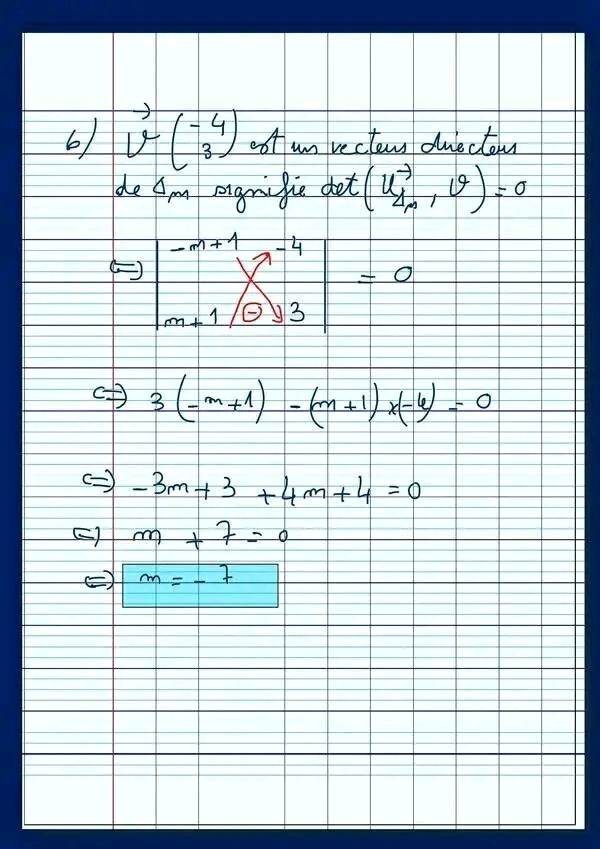 6) v⃗ (-4 3) est un vecteur directeur
de Δm signifie det(u⃗Δm, v) = 0
⇔ | -m+1 -4 | = 0
| m+1 ⊖ 3 |
⇔ 3(-m+1) - (m+1)×(-4) = 0
⇔ -3m+3 +4m+4 = 0
⇔ m + 7 = 0
⇔ m = -7